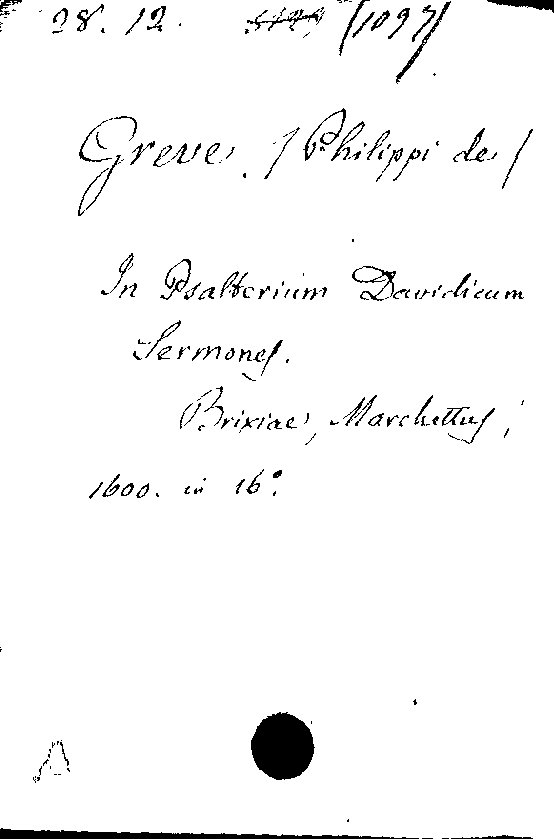 28. 12. (1097)
Greve, (Philippi de)
In Psalterium Davidicum
Sermones.
Brixiae, Marchettus,
1600. in 16°.